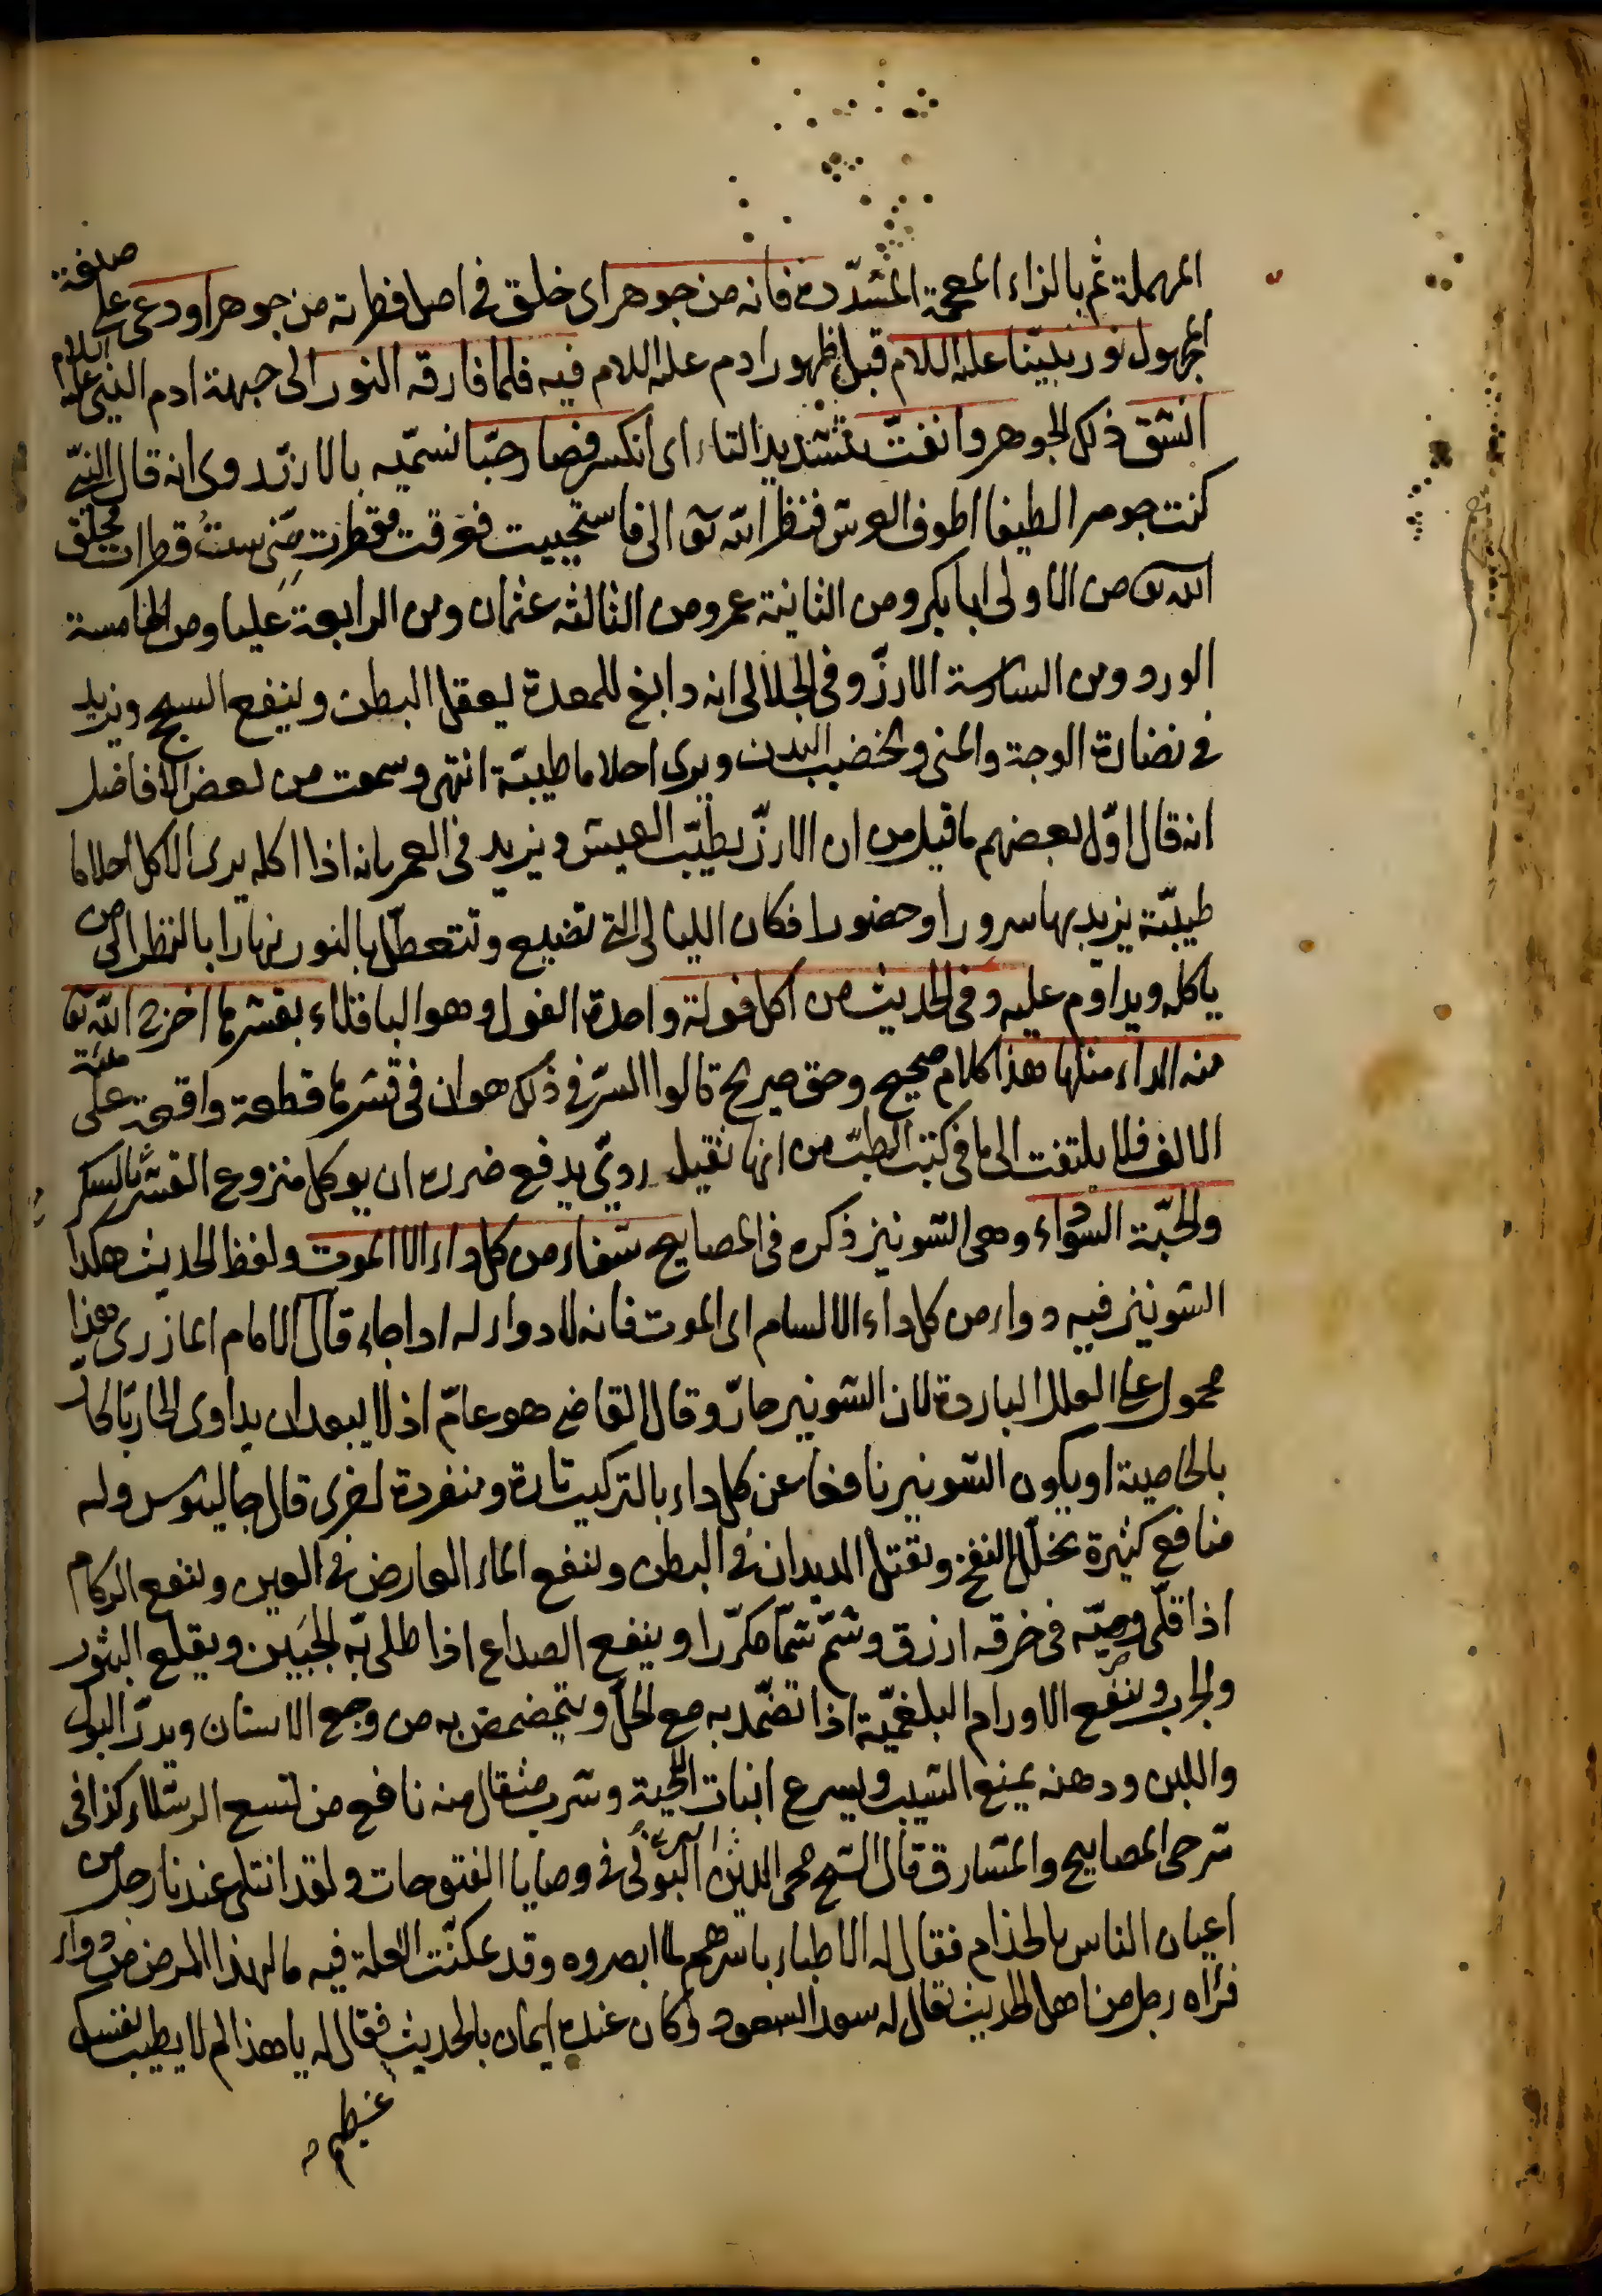 المهملة ثم بالزاء المعجمة المشددة فانه من جوهر اى خلق فى اصل فطرته من جوهر اودع على صيغة
المجهول نور نبينا عليه السلام قبل ظهور ادم عليه السلام فيه فلما فارقه النور الى جبهة ادم النبى عليه السلام
انشق ذلك الجوهر وانفتّ بتشديد التاء اى انكسر فصار حبّا نسمّيه بالارز روى انه قال النبى
كنت جوهرا لطيفا اطوف العرش فنظر الله تعا الى فاستحييت فعرقت فقطرت منى ست قطرات فخلق
الله تعا من الاولى ابا بكر ومن الثانية عمر ومن الثالثة عثمان ومن الرابعة عليا ومن الخامسة
الورد ومن السادسة الارزّ وفى الجلالى انه دابغ للمعدة يعقل البطن وينفع السحج ويزيد
فى نضارة الوجه والمنى ويخضب البدن ويرى احلاما طيبة انتهى وسمعت من بعض الافاضل
انه قال اوّل بعضهم ما قيل من ان الارزّ يطيّب العيش ويزيد فى العمر بانه اذا اكله يرى الاكل احلاما
طيبّة يزيد بها سرورا وحضورا فكان الليالى التى تضيع وتتعطل بالنور نهارا بالنظر الى من
ياكله ويداوم عليه وفى الحديث من اكل فولة واحدة الفول وهو الباقلاء بقشرها اخرج الله تعا
منه الداء مثلها هذا كلام صحيح وحق صريح قالوا السرّ فى ذلك هو ان فى قشرها قطعة واقعة على هيئة
الالف فلا يلتفت الى ما فى كتب الطبّ من انها ثقيل رديّ يدفع ضرره ان يوكل منزوع القشر بالسكر
والحبّة السوداء وهى الشونيز ذكره فى المصابيح شفاء من كل داء الا الموت ولفظ الحديث هكذا
الشونيز فيه دواء من كل داء الا السام اى الموت فانه لا دواء له اذا جاء قال الامام المازرى هذا
محمول على العلل الباردة لان الشونيز حارّ وقال القاضى هو عامّ اذ لا يبعد ان يداوى الحارّ بالحارّ
بالخاصية او يكون الشونيز نافعا عن كل داء بالتركيب تارة ومنفردة اخرى قال جالينوس وله
منافع كثيرة يحلّل النفخ ويقتل الديدان فى البطن وينفع الماء العارض فى العين وينفع الزكام
اذا قلى وصرّ فى خرقه ازرق وشمّ شمّا مكرّرا وينفع الصداع اذا طلى به الجبين ويقلع البثور
والجرب وينفع الاورام البلغميّة اذا تضمّد به مع الخل ويتمضمض به من وجع الاسنان ويدرّ البول
واللبن ودهنه يمنع الشيب ويسرع انبات اللحية وشرب مثقال منه نافع من لسع الرتيلاء كذا فى
شرحى المصابيح والمشارق قال الشيخ محى الدين البونى فى وصايا الفتوحات ولقد ابتلى عندنا رجل من
اعيان الناس بالجذام فقال له الاطباء باسرهم لما ابصروه وقد تمكنت العلة فيه ما لهذا المرض من دواء
فرآه رجل من اهل الحديث يقال له سعد السعود وكان عنده ايمان بالحديث فقال له يا هذا لم لا يطيب نفسك
عظيم